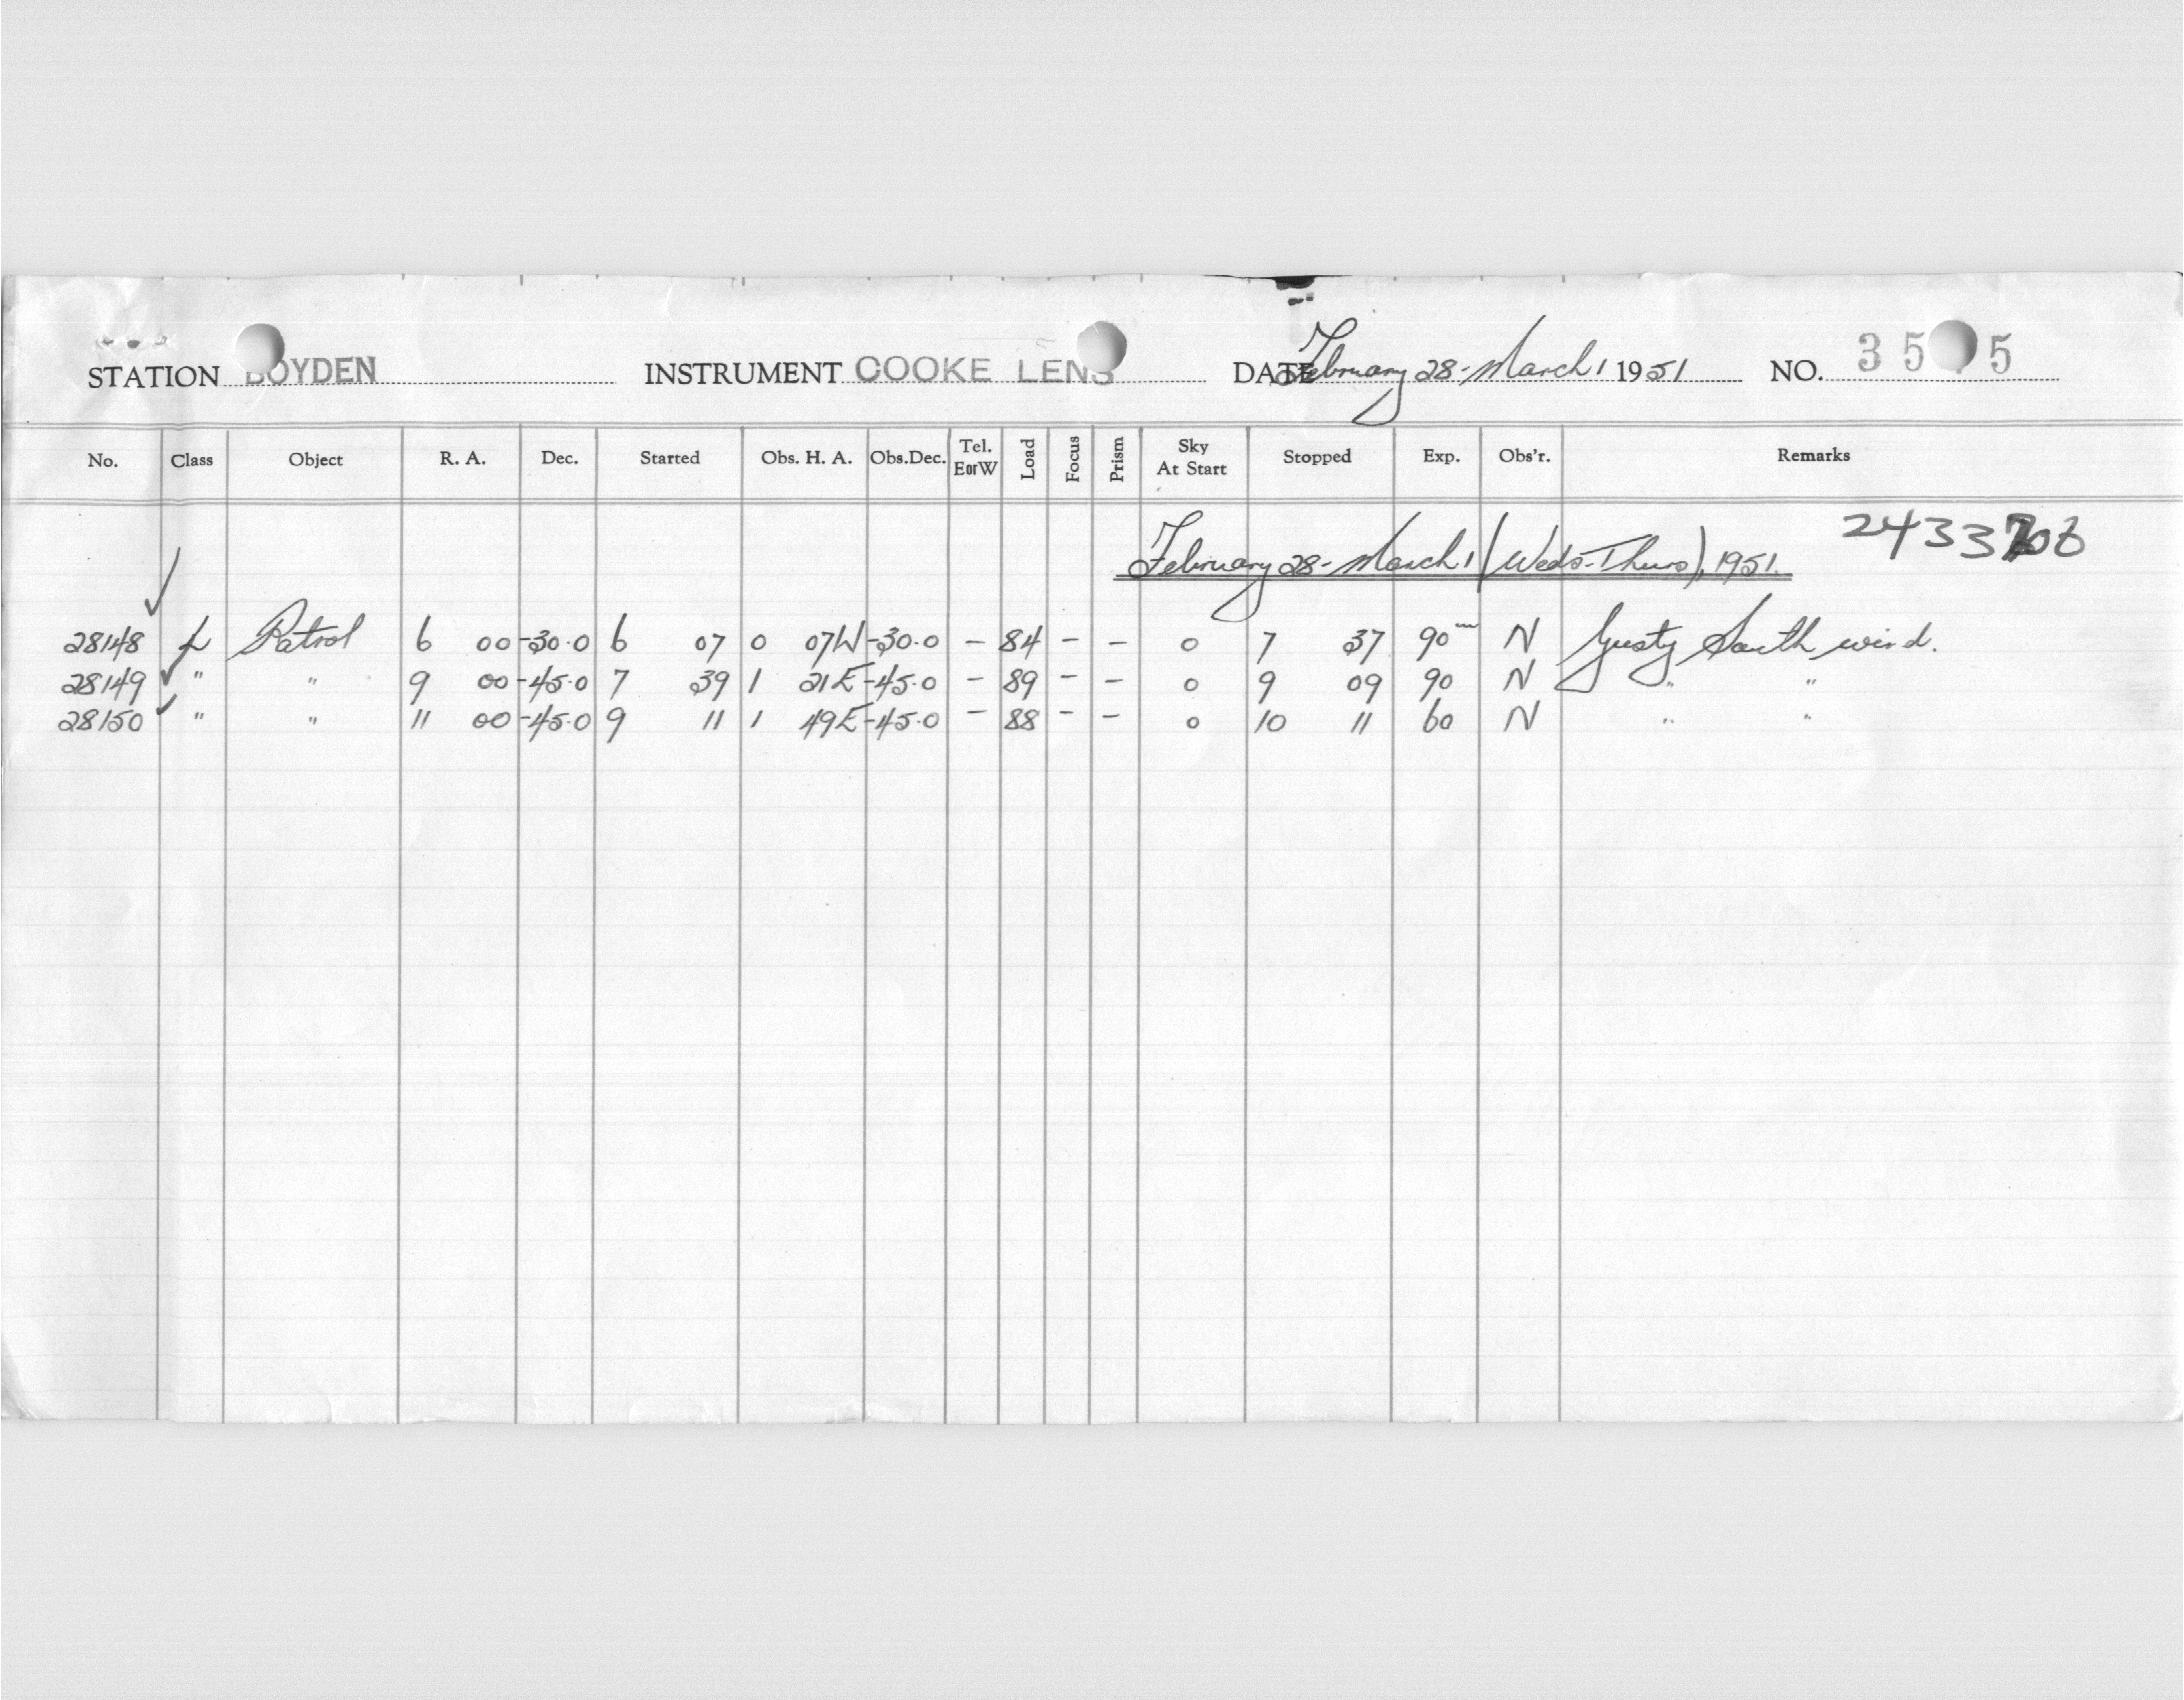 STATION BOYDEN INSTRUMENT COOKE LENS DATE February 28-March 1 1951 NO. 35 5
No. Class Object R. A. Dec. Started Obs. H. A. Obs.Dec. Tel. EorW Load Focus Prism Sky At Start Stopped Exp. Obs'r. Remarks
February 28-March 1 (Weds-Thurs), 1951. 2433706
28148 L Patrol 6 00 -30.0 6 07 0 07W -30.0 - 84 - - 0 7 37 90m N Gusty South wind.
28149 " " 9 00 -45.0 7 39 1 21E -45.0 - 89 - - 0 9 09 90 N " "
28150 " " 11 00 -45.0 9 11 1 49E -45.0 - 88 - - 0 10 11 60 N " "